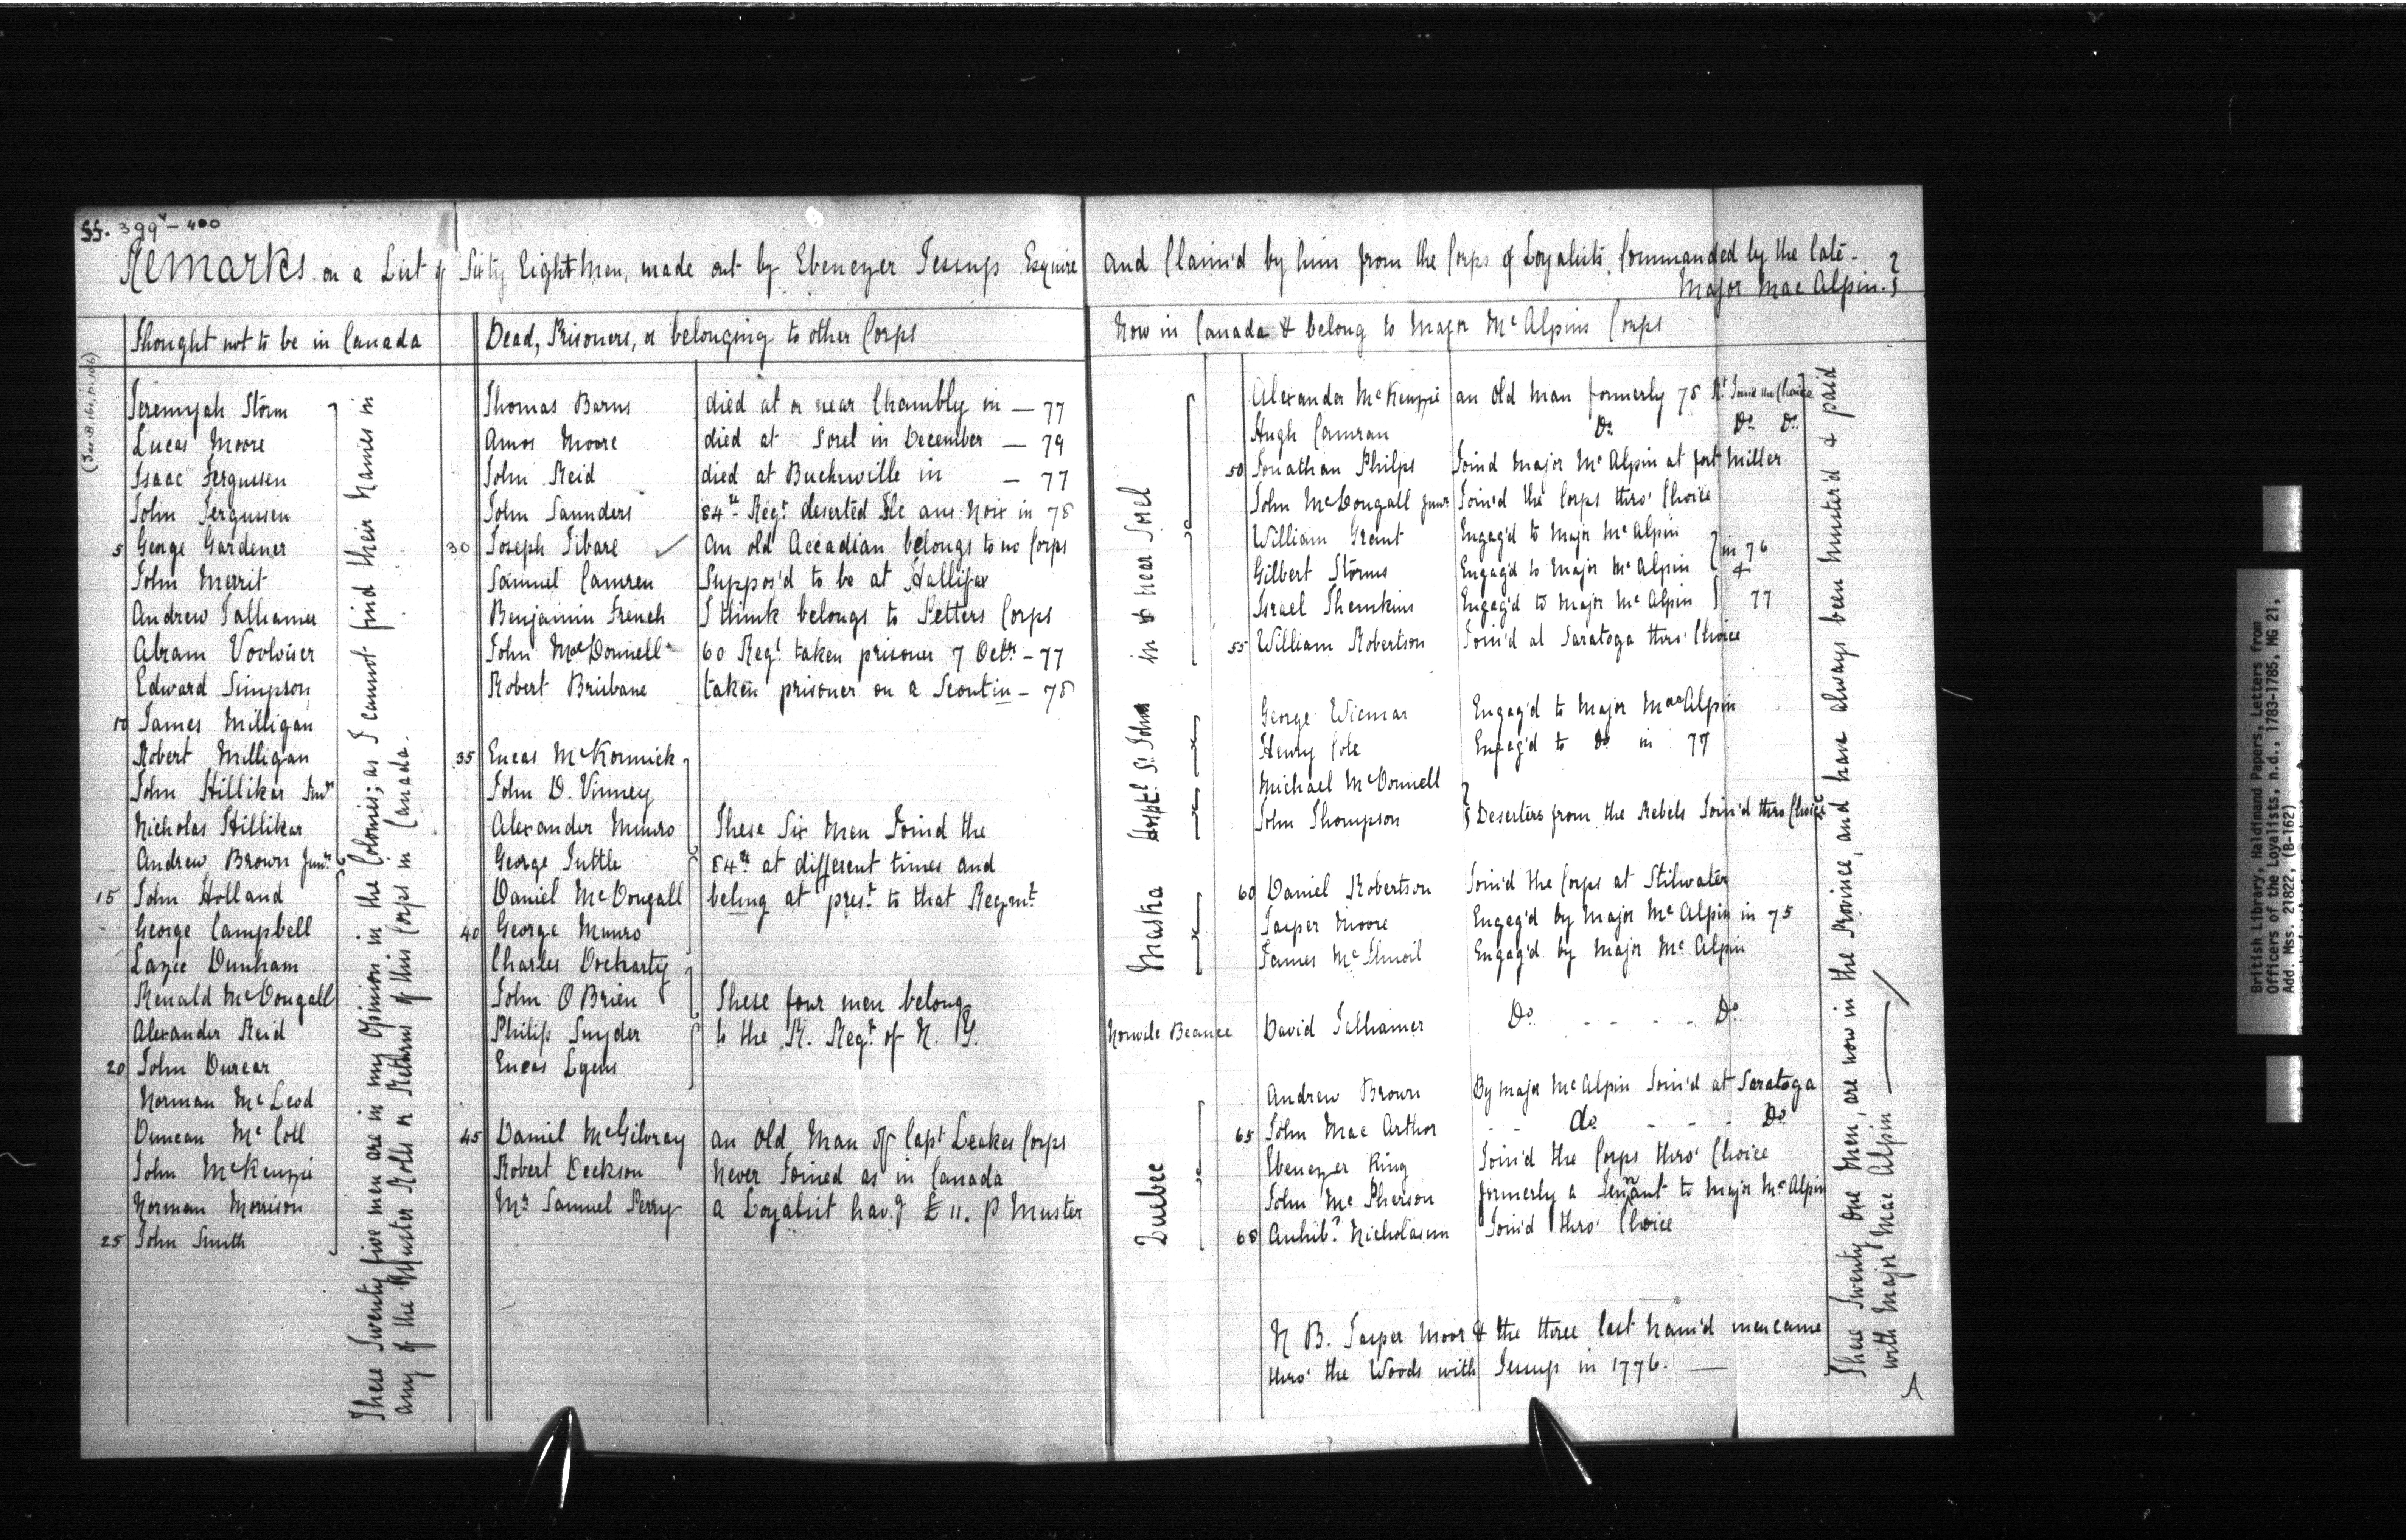 ff. 399v - 400
Remarks on a List of Sixty Eight Men, made out by Ebenezer Jessup Esquire and Claim'd by him from the Corps of Loyalists, Commanded by the late -
Major Mac Alpin.
(See B. 161, p. 106)
Thought not to be in Canada
Jeremyah Storm
Lucas Moore
Isaac Fergussen
John Fergussen
5 George Gardener
John Merrit
Andrew Talhamer
Abram Voolviser
Edward Simpson
10 James Milligan
Robert Milligan
John Hilliker Sen'r
Nicholas Hilliker
Andrew Brown Jun'r
15 John Holland
George Campbell
Lazee Dunham
Renald McDougall
Alexander Reid
20 John Durear
Norman McLeod
Duncan McColl
John McKenzie
Norman Morrison
25 John Smith
These Twenty five men are in my Opinion in the Colonies; as I cannot find their names in
any of the Muster Rolls or Returns of this Corps in Canada.
Dead, Prisoners, or belonging to other Corps
Thomas Barns died at or near Chambly in — 77
Amos Moore died at Sorel in December — 79
John Reid died at Buchwville in — 77
John Saunders 84th Reg't deserted Ile aux Noix in 78
30 Joseph Tibare ✓ An old Accadian belongs to no Corps
Samuel Camren Suppos'd to be at Hallifax
Benjamin French I think belongs to Petters Corps
John MacDonnell 60 Reg't taken prisoner 7 Octr - 77
Robert Brisbane taken prisoner on a Scout in - 78
35 Eneas McKormick
John D. Vinney
Alexander Munro These Six Men Joind the
George Tuttle 84th at different times and
Daniel McDougall belong at pres't to that Regmt
40 George Munro
Charles Dockarty
John O Brien These four men belong
Philip Snyder to the R. Reg't of N. Y.
Eneas Lyons
45 Daniel McGilvray an Old Man of Capt Leakes Corps
Robert Deckson Never Joined as in Canada
Mr Samuel Perry a Loyalist hav.g £ 11. P Muster
Now in Canada & belong to Major McAlpins Corps
in & near Sorel
Alexander McKenzie an Old Man formerly 78 Rt Joind thro Choice
Hugh Camran Do Do Do
50 Jonathan Philps Joind Major McAlpin at fort Miller
John McDougall Junr Join'd the Corps thro' Choice
William Grant Engag'd to Major McAlpin
Gilbert Storms Engag'd to Major McAlpin in 76 &
Israel Thomkins Engag'd to Major McAlpin 77
55 William Robertson Join'd at Saratoga thro' Choice
Hosptl St Johns
George Wiemar Engag'd to Major MacAlpin
Henry Cole Engag'd to Do in 77
Michael McDonnell
John Thompson Deserters from the Rebels Join'd thro Choice
Maska
60 Daniel Robertson Join'd the Corps at Stilwater
Jasper Moore Engag'd by Major McAlpin in 75
James McIlmoil Engag'd by Major McAlpin
Nouvele Beauce David Talhamer Do - - - - Do
Quebec
Andrew Brown By Major McAlpin Join'd at Saratoga
65 John Mac Arthor - - do - - - Do
Ebenezer King Join'd the Corps thro' Choice
John McPherson formerly a Tennant to Major McAlpin
68 Archib'd Nicholason Join'd thro' Choice
N B. Jasper Moor & the three last Nam'd men came
thro' the Woods with Jessup in 1776. —
These Twenty One Men, are now in the Province, and have always been Muster'd & paid
with Major Mac Alpin —
A
British Library, Haldimand Papers, Letters from
Officers of the Loyalists, n.d., 1783-1785, MG 21,
Add. Mss. 21822, (B-162)